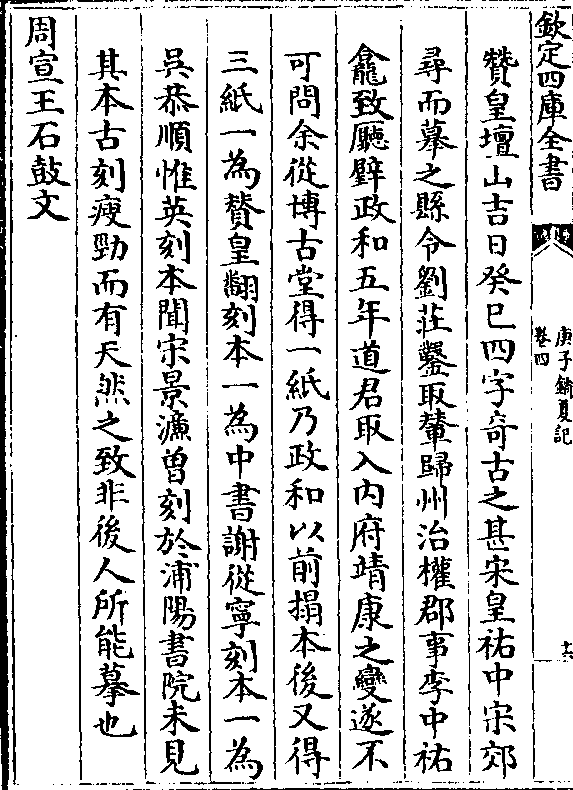 欽定四庫全書
庚子銷夏記
卷四
十六
贊皇壇山吉日癸巳四字奇古之甚宋皇祐中宋郊
尋而摹之縣令劉莊鑿取輦歸州治權郡事李中祐
龕致廳壁政和五年道君取入內府靖康之變遂不
可問余從博古堂得一紙乃政和以前搨本後又得
三紙一為贊皇翻刻本一為中書謝從寧刻本一為
吳恭順惟英刻本聞宋景濂曾刻於浦陽書院未見
其本古刻瘦勁而有天然之致非後人所能摹也
周宣王石鼓文